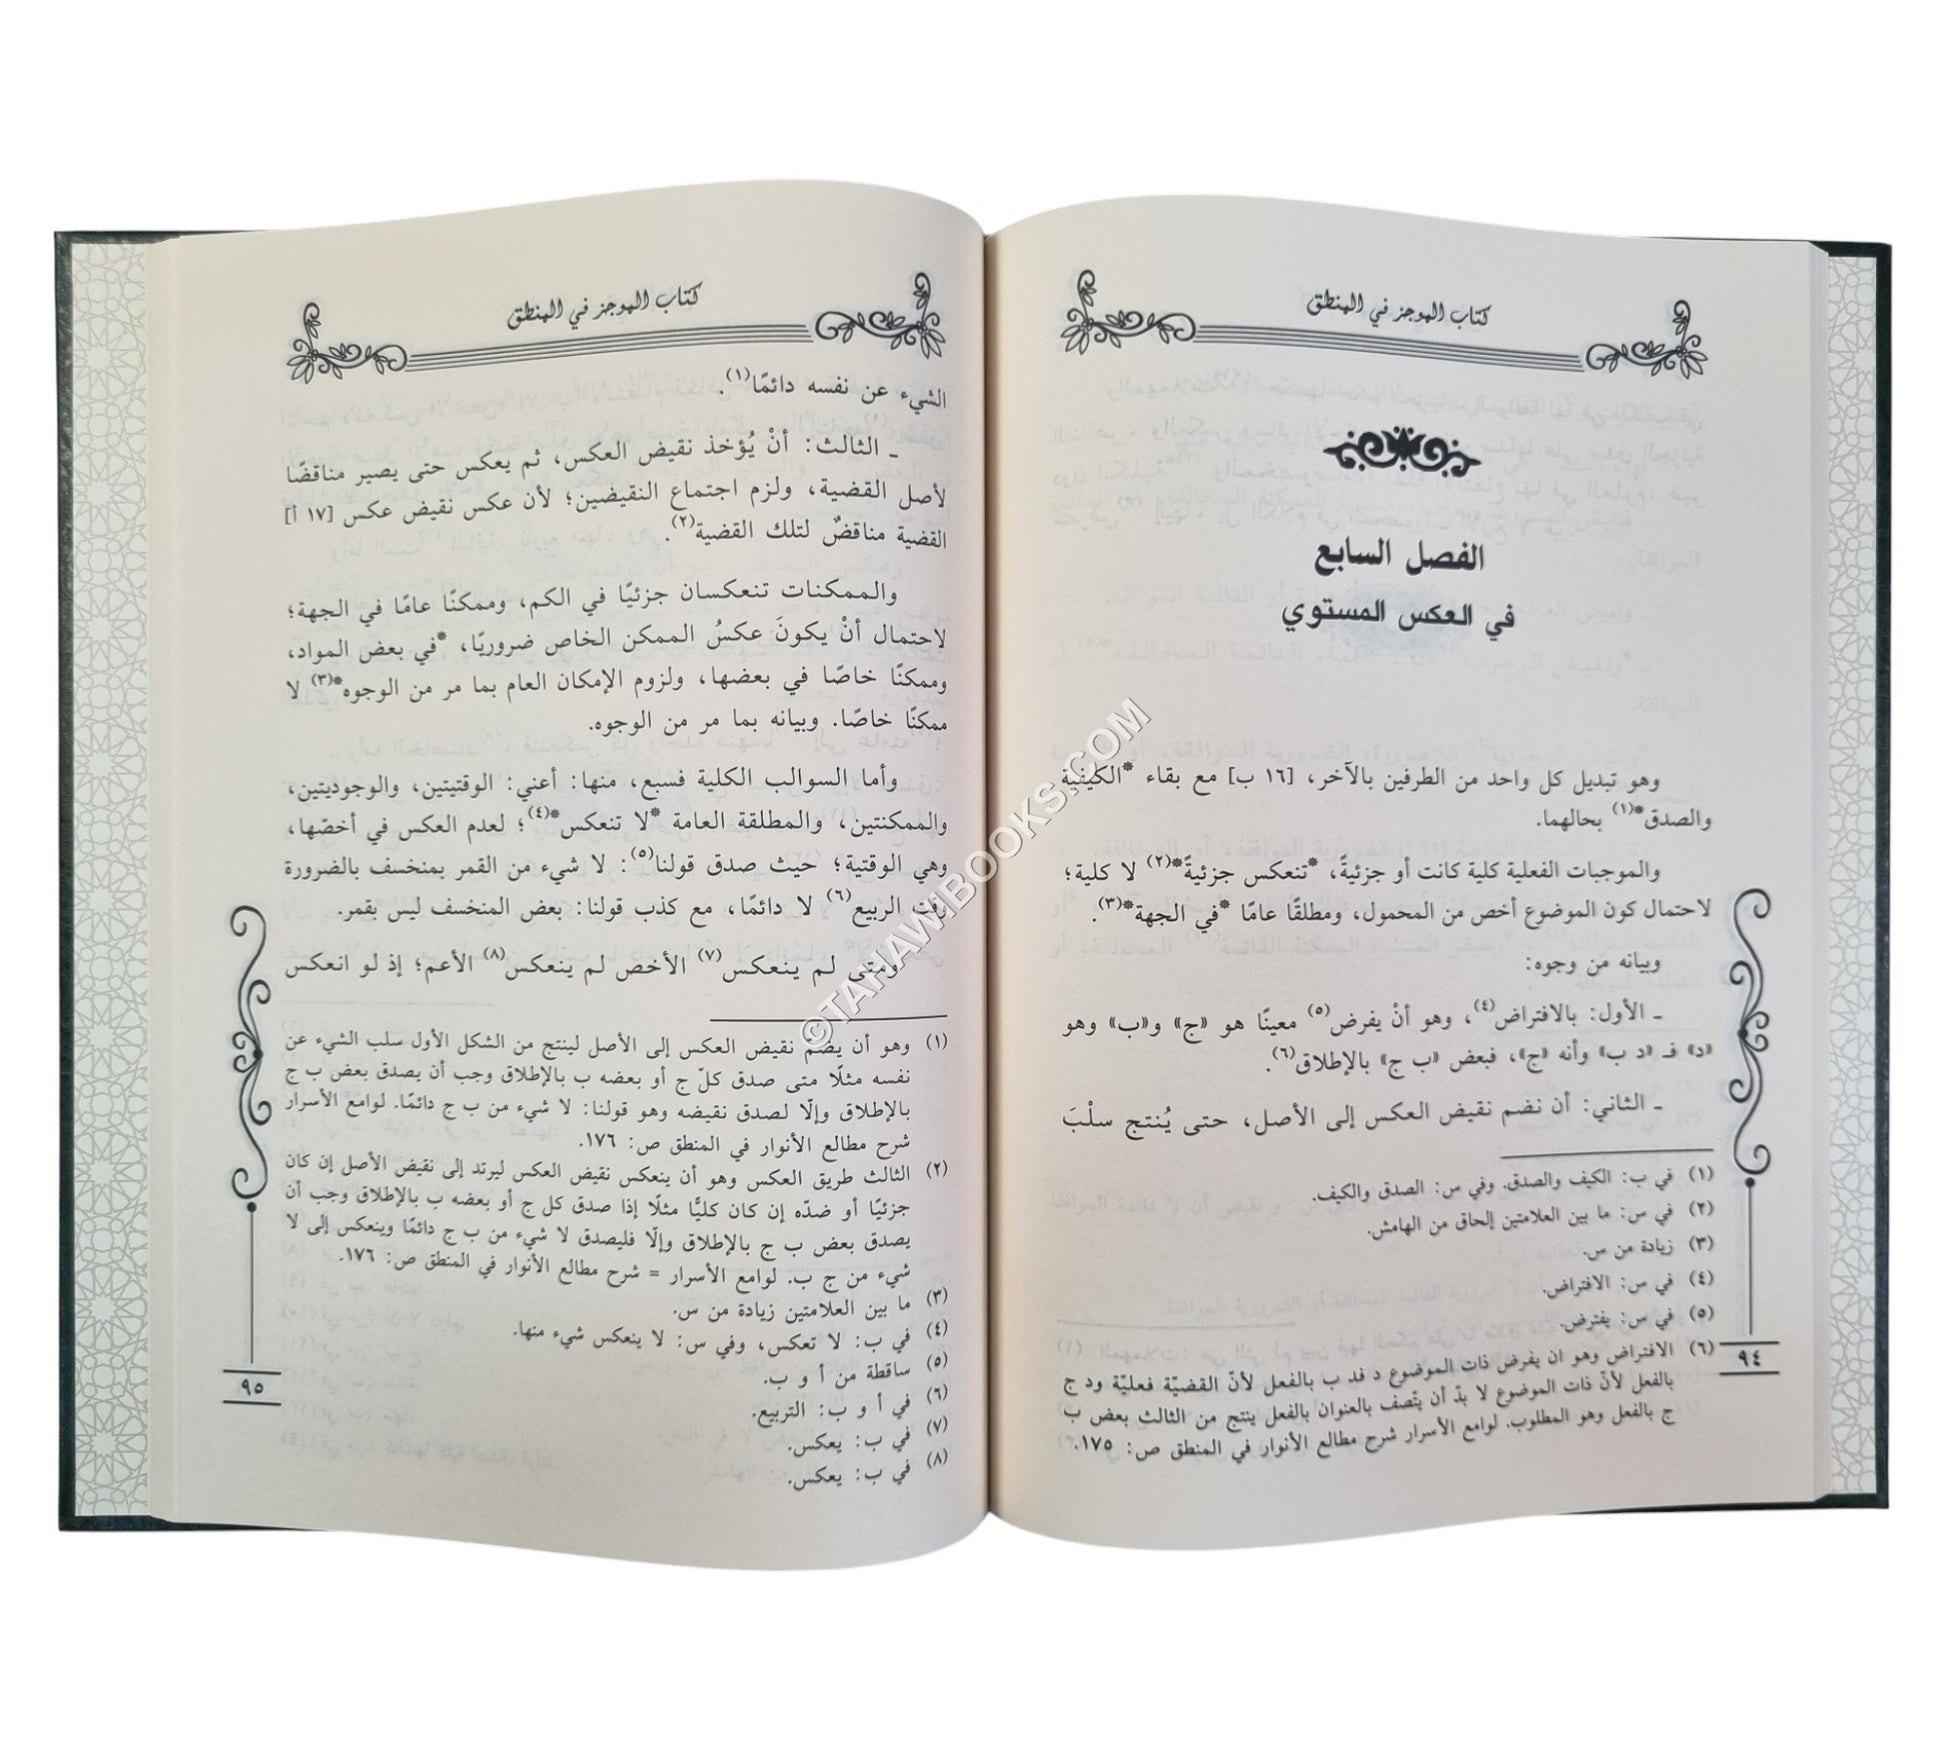 كتاب الموجز في المنطق
الفصل السابع
في العكس المستوي
وهو تبديل كل واحد من الطرفين بالآخر، [١٦ ب] مع بقاء *الكيفية
والصدق*(١) بحالهما.
والموجبات الفعلية كلية كانت أو جزئيةً، *تنعكس جزئيةً*(٢) لا كلية؛
لاحتمال كون الموضوع أخص من المحمول، ومطلقًا عامًا *في الجهة*(٣).
وبيانه من وجوه:
ـ الأول: بالافتراض(٤)، وهو أنْ يفرض(٥) معينًا هو «ج» و«ب» وهو
«د» فـ «د ب» وأنه «ج»، فبعض «ب ج» بالإطلاق(٦).
ـ الثاني: أن نضم نقيض العكس إلى الأصل، حتى يُنتج سلْبَ
(١) في ب: الكيف والصدق. وفي س: الصدق والكيف.
(٢) في س: ما بين العلامتين إلحاق من الهامش.
(٣) زيادة من س.
(٤) في س: الافتراض.
(٥) في س: يفترض.
(٦) الافتراض وهو ان يفرض ذات الموضوع د فد ب بالفعل لأنّ القضيّة فعليّة ود ج
بالفعل لأنّ ذات الموضوع لا بدّ أن يتّصف بالعنوان بالفعل ينتج من الثالث بعض ب
ج بالفعل وهو المطلوب. لوامع الأسرار شرح مطالع الأنوار في المنطق ص: ١٧٥.
٩٤
كتاب الموجز في المنطق
الشيء عن نفسه دائمًا(١).
ـ الثالث: أنْ يُؤخذ نقيض العكس، ثم يعكس حتى يصير مناقضًا
لأصل القضية، ولزم اجتماع النقيضين؛ لأن عكس نقيض عكس [١٧ أ]
القضية مناقضٌ لتلك القضية(٢).
والممكنات تنعكسان جزئيًا في الكم، وممكنًا عامًا في الجهة؛
لاحتمال أنْ يكونَ عكسُ الممكن الخاص ضروريًا، *في بعض المواد،
وممكنًا خاصًا في بعضها، ولزوم الإمكان العام بما مر من الوجوه*(٣) لا
ممكنًا خاصًا. وبيانه بما مر من الوجوه.
وأما السوالب الكلية فسبع، منها: أعني: الوقتيتين، والوجوديتين،
والممكنتين، والمطلقة العامة *لا تنعكس*(٤)؛ لعدم العكس في أخصّها،
وهي الوقتية؛ حيث صدق قولنا(٥): لا شيء من القمر بمنخسف بالضرورة
وقت الربيع(٦) لا دائمًا، مع كذب قولنا: بعض المنخسف ليس بقمر.
ومتى لم ينعكس(٧) الأخص لم ينعكس(٨) الأعم؛ إذ لو انعكس
(١) وهو أن يضمّ نقيض العكس إلى الأصل لينتج من الشكل الأول سلب الشيء عن
نفسه مثلًا متى صدق كلّ ج أو بعضه ب بالإطلاق وجب أن يصدق بعض ب ج
بالإطلاق وإلّا لصدق نقيضه وهو قولنا: لا شيء من ب ج دائمًا. لوامع الأسرار
شرح مطالع الأنوار في المنطق ص: ١٧٦.
(٢) الثالث طريق العكس وهو أن ينعكس نقيض العكس ليرتد إلى نقيض الأصل إن كان
جزئيًا أو ضدّه إن كان كليًّا مثلًا إذا صدق كل ج أو بعضه ب بالإطلاق وجب أن
يصدق بعض ب ج بالإطلاق وإلّا فليصدق لا شيء من ب ج دائمًا وينعكس إلى لا
شيء من ج ب. لوامع الأسرار = شرح مطالع الأنوار في المنطق ص: ١٧٦.
(٣) ما بين العلامتين زيادة من س.
(٤) في ب: لا تعكس، وفي س: لا ينعكس شيء منها.
(٥) ساقطة من أ و ب.
(٦) في أ و ب: التربيع.
(٧) في ب: يعكس.
(٨) في ب: يعكس.
٩٥
©TAHAWIBOOKS.COM